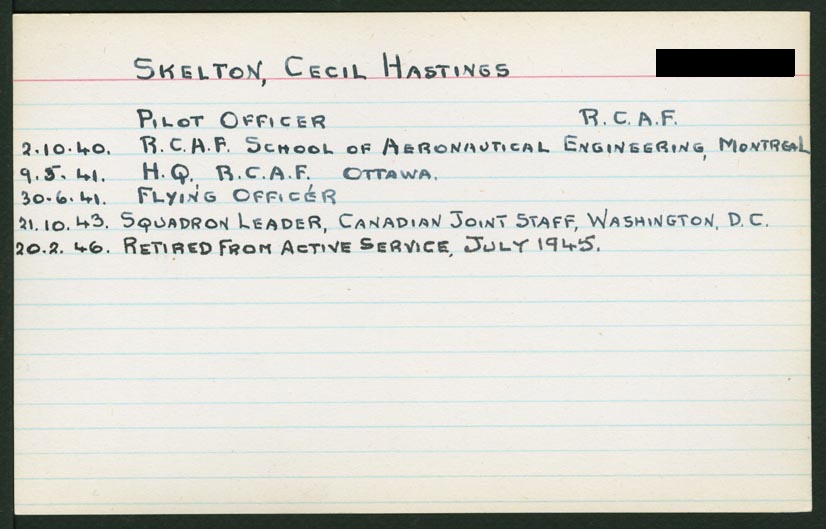 SKELTON, CECIL HASTINGS
PILOT OFFICER R.C.A.F.
2.10.40. R.C.A.F. SCHOOL OF AERONAUTICAL ENGINEERING, MONTREAL
9.5.41. H.Q. R.C.A.F. OTTAWA.
30.6.41. FLYING OFFICER
21.10.43. SQUADRON LEADER, CANADIAN JOINT STAFF, WASHINGTON, D.C.
20.2.46. RETIRED FROM ACTIVE SERVICE, JULY 1945.